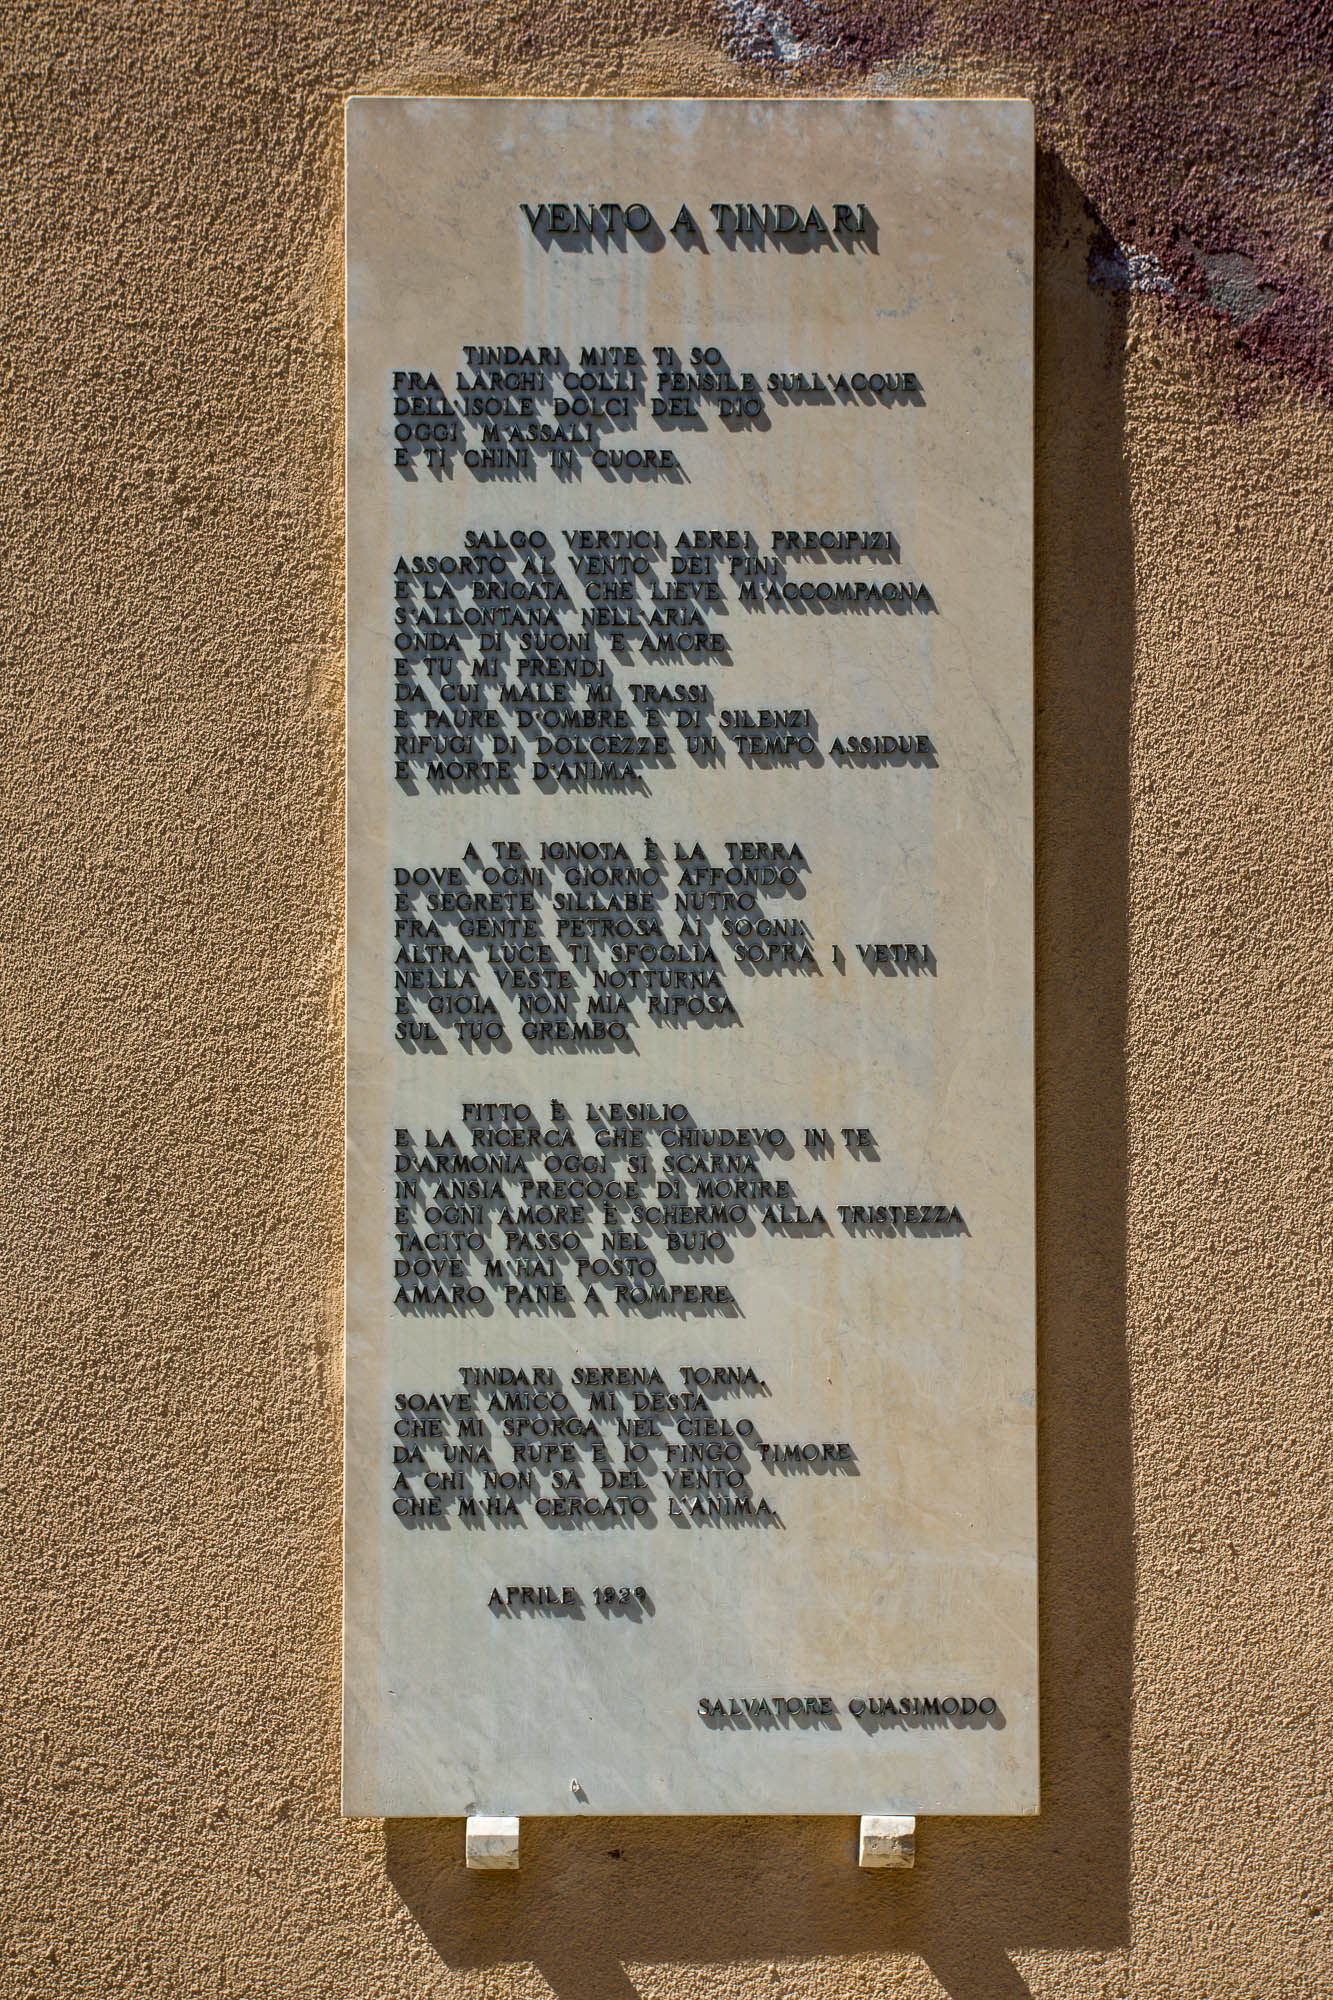 VENTO A TINDARI
TINDARI MITE TI SO
FRA LARGHI COLLI PENSILE SULL'ACQUE
DELL'ISOLE DOLCI DEL DIO
OGGI M'ASSALI
E TI CHINI IN CUORE.
SALGO VERTICI AEREI PRECIPIZI
ASSORTO AL VENTO DEI PINI
E LA BRIGATA CHE LIEVE M'ACCOMPAGNA
S'ALLONTANA NELL'ARIA
ONDA DI SUONI E AMORE
E TU MI PRENDI
DA CUI MALE MI TRASSI
E PAURE D'OMBRE E DI SILENZI
RIFUGI DI DOLCEZZE UN TEMPO ASSIDUE
E MORTE D'ANIMA.
A TE IGNOTA È LA TERRA
DOVE OGNI GIORNO AFFONDO
E SEGRETE SILLABE NUTRO
FRA GENTE PETROSA AI SOGNI:
ALTRA LUCE TI SFOGLIA SOPRA I VETRI
NELLA VESTE NOTTURNA
E GIOIA NON MIA RIPOSA
SUL TUO GREMBO.
FITTO È L'ESILIO
E LA RICERCA CHE CHIUDEVO IN TE
D'ARMONIA OGGI SI SCARNA
IN ANSIA PRECOCE DI MORIRE
E OGNI AMORE È SCHERMO ALLA TRISTEZZA
TACITO PASSO NEL BUIO
DOVE M'HAI POSTO
AMARO PANE A ROMPERE.
TINDARI SERENA TORNA,
SOAVE AMICO MI DESTA
CHE MI SPORGA NEL CIELO
DA UNA RUPE E IO FINGO TIMORE
A CHI NON SA DEL VENTO
CHE M'HA CERCATO L'ANIMA.
APRILE 1929
SALVATORE QUASIMODO